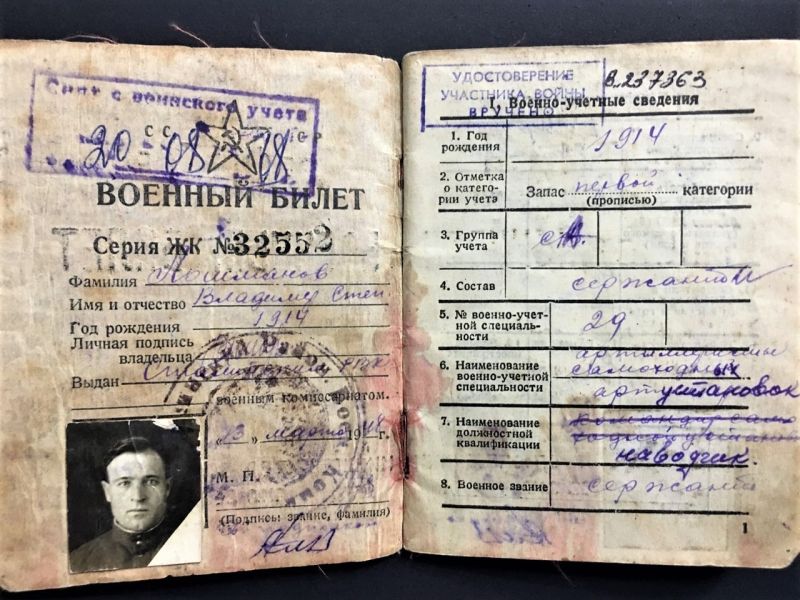 Снят с воинского учета
СССР
20 08 68
ВОЕННЫЙ БИЛЕТ
Серия ЖК №32552
Фамилия
Имя и отчество Владимир Степ
Год рождения 1914
Личная подпись
владельца
Выдан РВК
военным комиссариатом.
„13" марта 1948 г.
М. П.
(Подпись, звание, фамилия)
УДОСТОВЕРЕНИЕ
УЧАСТНИКА ВОЙНЫ
ВРУЧЕНО
В.237363
I. Военно-учетные сведения
1. Год
рождения
1914
2. Отметка
о катего-
рии учета
Запас первой категории
(прописью)
3. Группа
учета
4. Состав
сержантов
5. № военно-учет-
ной специаль-
ности
29
6. Наименование
военно-учетной
специальности
артиллерист
самоходных
артустановок
7. Наименование
должностной
квалификации
командир само
ходной установ
наводчик
8. Военное звание
сержант
1